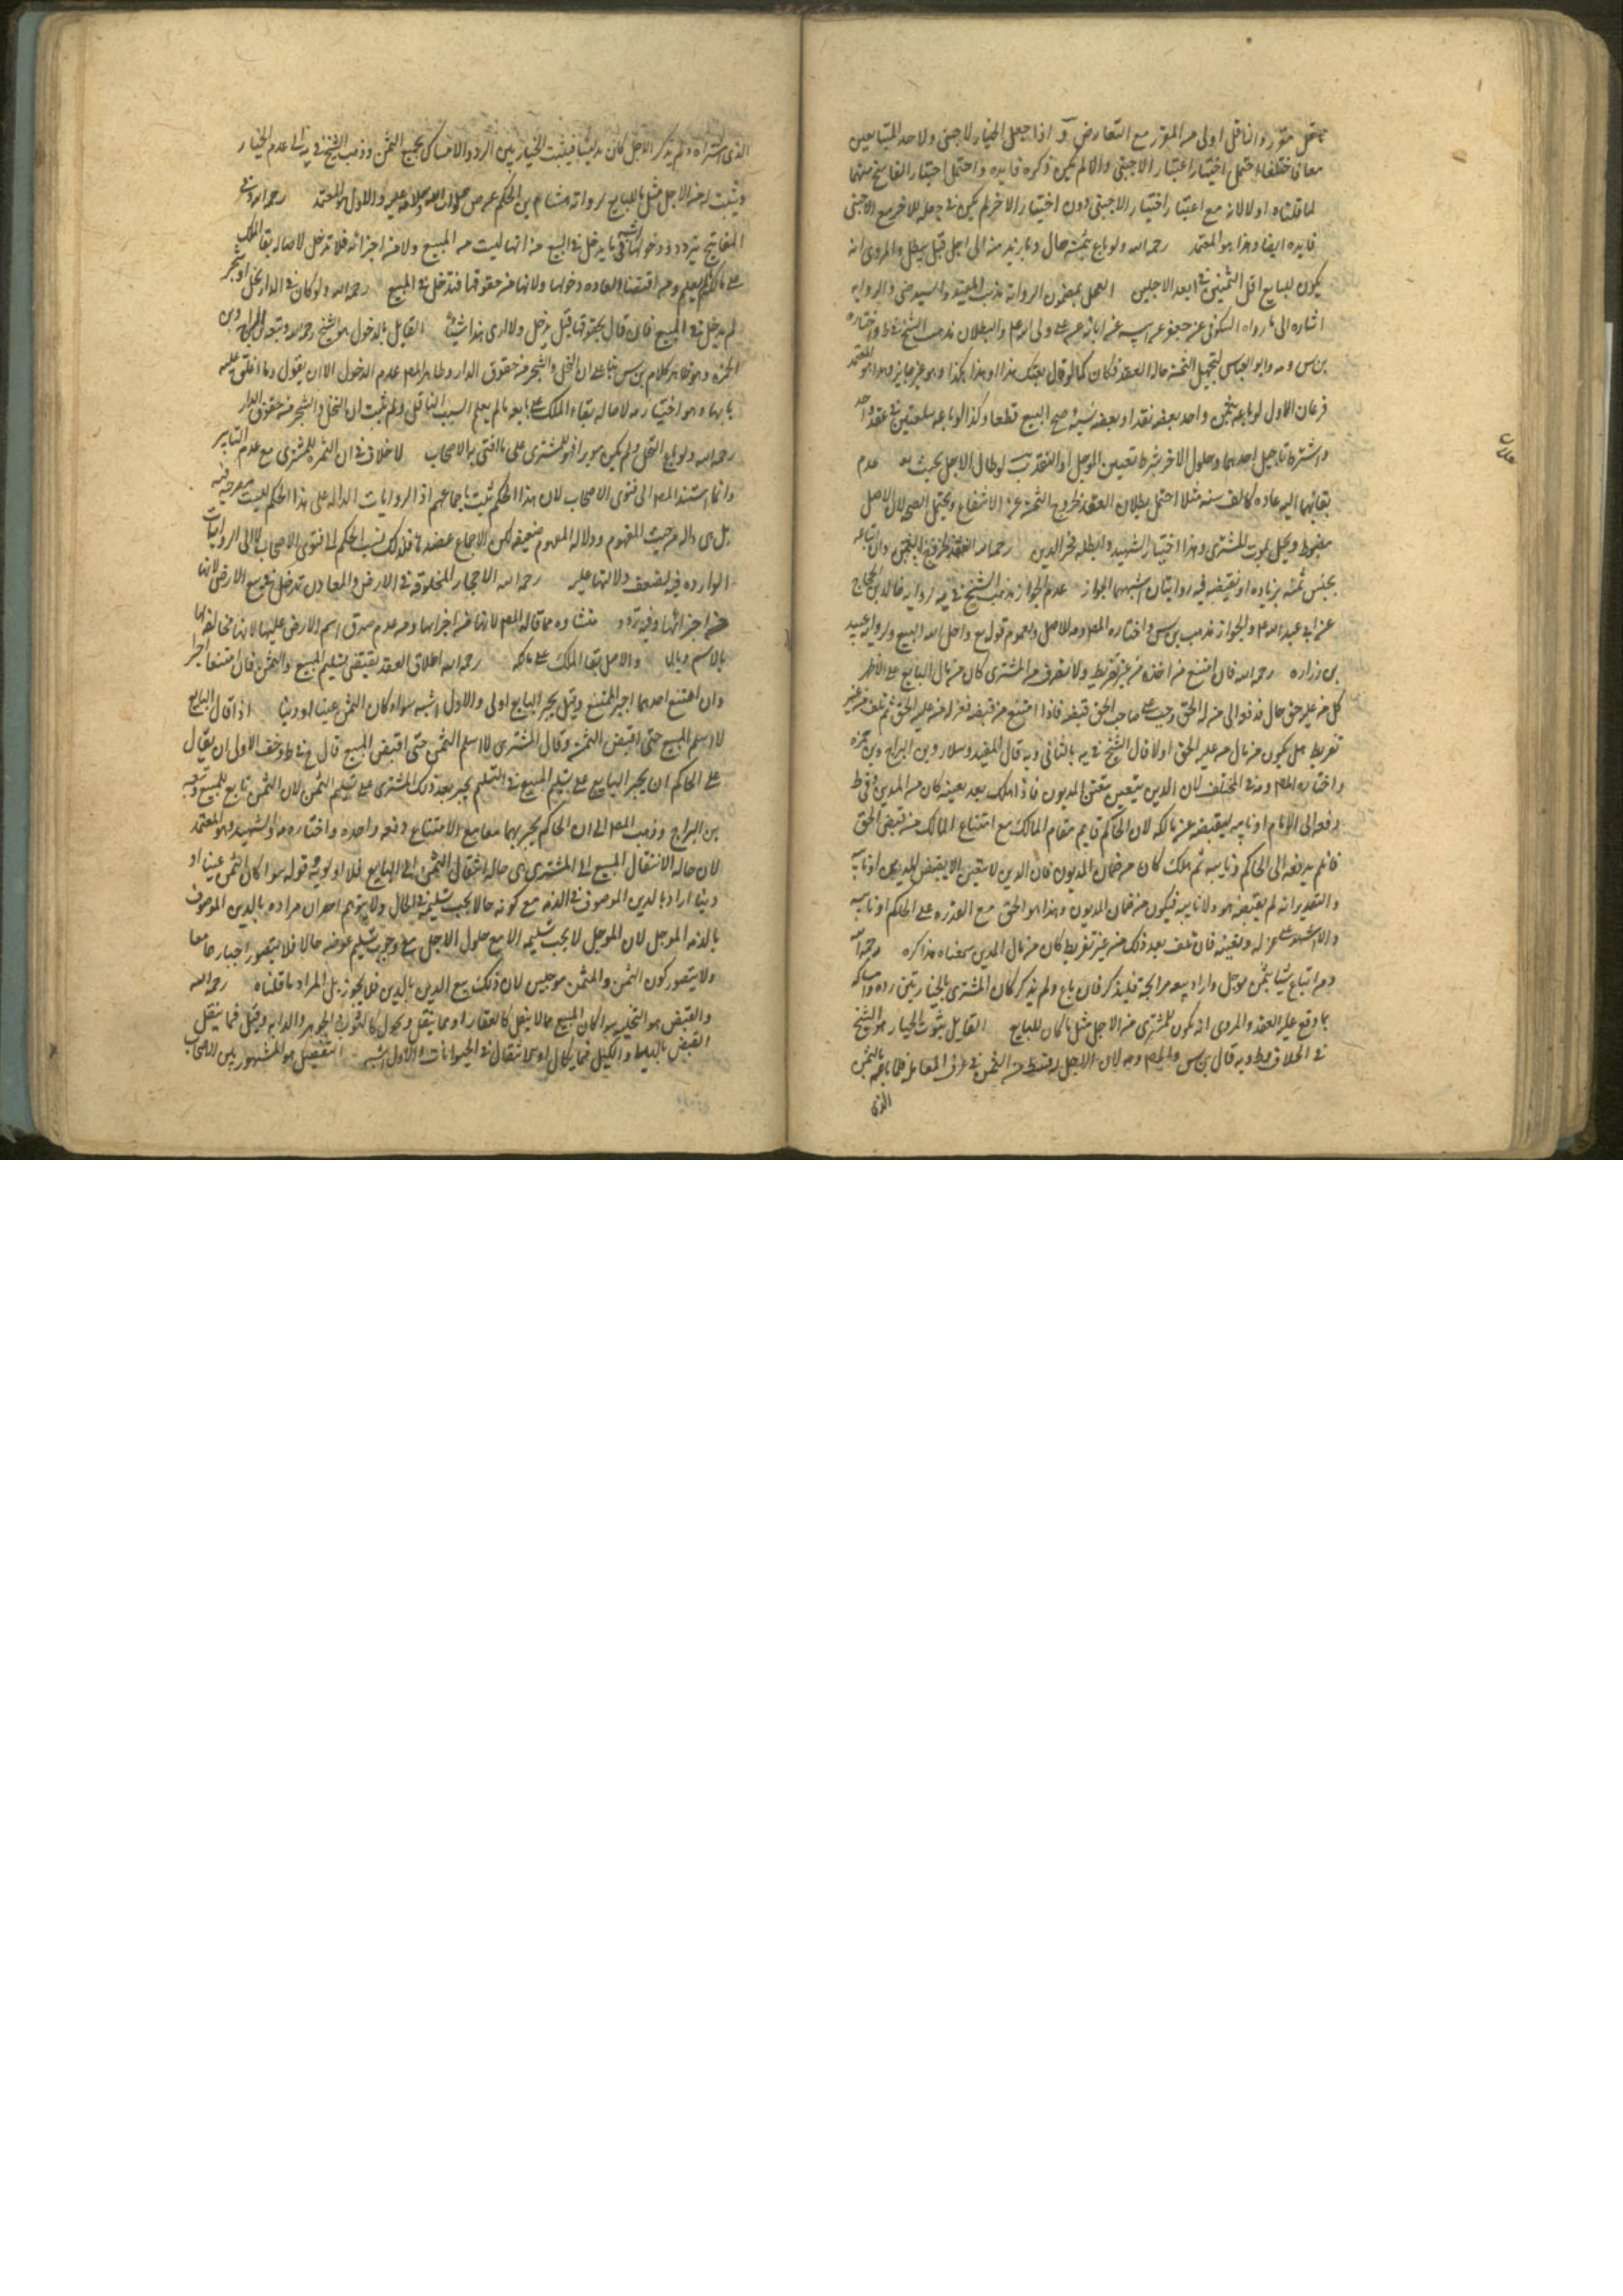 ناقل مقرر والناقل اولى من المقرر مع التعارض اذا جعل الخيار لاجنبي ولاحد المتبايعين
معا فاختلفا احتمل اختيار اعتبار الاجنبي والا لم يكن لذكره فايده واحتمل اختيار الفاسخ منهما
لما قلناه اولا لانه مع اعتبار اختيار الاجنبي دون اختيار الاخر لم يكن في جعله للاخر مع الاجنبي
فايده ايضا وهذا هو المعتمد رحمه الله ولو باع بثمن حال وبازيد منه الى اجل قيل يبطل والمروى انه
يكون للبايع اقل الثمنين في ابعد الاجلين العمل بمضمون الرواية مذهب المفيد والسيد والرواية
اشاره الى ما رواه السكوني عن جعفر عن ابيه عن ابائه عن على والبطلان مذهب الشيخ في ط واختاره
بن س وابو العباس لتجهيل الثمن حالة العقد فكان كما لو قال بعتك هذا او هذا بكذا وهو غير جايز وهذا هو المعتمد
فرعان الاول لو باعه بثمن واحد بعضه نقدا وبعضه نسيئه صح البيع قطعا وكذا لو باعه سلعتين في عقد واحد
واشترط تاجيل احدهما وحلول الاخر بشرط تعيين الموجل او النقد ب لو طال الاجل بحيث يعلم عدم
بقائهما اليه عاده كالف سنه مثلا احتمل بطلان العقد لخروج الثمن عن الانتفاع ويحتمل الصحه لان الاجل
مضبوط ويحل بموت المشترى وهذا اختيار الشهيد وابطله فخر الدين رحمه الله وان ابتاعه
بجنس ثمنه بزياده او نقيصه فيه روايتان اشبههما الجواز عدم الجواز مذهب الشيخ في يه لرواية خالد بن الحجاج
عن ابى عبد الله والجواز مذهب بن س واختاره المص للاصل ولعموم قوله تع واحل الله البيع ولرواية عبيد
بن زراره رحمه الله فان امتنع من اخذه ثم هلك من غير تفريط ولا تصرف من المشترى كان من مال البايع على الاظهر
كل من عليه حق حال فدفعه الى من له الحق وجب على صاحب الحق قبضه فاذا امتنع من قبضه فعزله من عليه الحق ثم تلف من غير
تفريط هل يكون من مال من عليه الحق اولا قال الشيخ في يه بالثانى وبه قال المفيد وسلار وبن البراج وبن حمزه
واختاره المص ومنه في المختلف لان الدين يتعين بتعيين المديون فاذا هلك بعد تعيينه كان من المدين وفى ط
يدفع الى الامام او نايبه ليقبضه عن مالكه لان الحاكم قايم مقام المالك مع امتناع المالك من قبض الحق
فان لم يدفعه الى الحاكم ونايبه ثم هلك كان من ضمان المديون فان الدين لا يتعين الا بقبض المدين او نايبه
والتقدير انه لم يقبضه هو ولا نايبه فيكون من ضمان المديون وهذا هو الحق مع القدره على الحاكم او نايبه
والا اشهد على عزله وتعيينه فان تلف بعد ذلك من غير تفريط كان من مال المدين سمعناه مذاكره رحمه الله
ومن ابتاع شيئا بثمن موجل واراد بيعه مرابحة فليذكر فان باع ولم يذكر كان المشترى بالخيار بين رده وامساكه
بما وقع عليه العقد والمروى انه يكون للمشترى من الاجل مثل ما كان للبايع القايل بثبوت الخيار هو الشيخ
في الخلاف وط وبه قال بن س والمص لان الاجل له قسط من الثمن في عرف المعامله فلما باعه بالثمن
الذى
الذى اشتراه ولم يذكر الاجل كان مدلسا فيثبت الخيار بين الرد والامساك بجميع الثمن وذهب الشيخ في يه الى عدم الخيار
ويثبت له من الاجل مثل ما للبايع لرواية هشام بن الحكم عن ص صلوات الله وسلامه عليه والاول هو المعتمد رحمه الله وفى
المفاتيح تردد ودخولها اشبه فيما يدخل في البيع من انها ليست من المبيع ولا من اجزائه فلا تدخل لاصالة بقا الملك
على مالكه ومن اقتضا العاده دخولها ولانها من حقوقها فتدخل في المبيع رحمه الله ولو كان في الدار نخل او شجر
لم يدخل في المبيع فان قال بحقوقها قيل يدخل ولا ارى هذا شيئا القايل بالدخول هو الشيخ رحمه الله وتبعه بن
حمزه وهو ظاهر كلام بن س بناء على ان النخل والشجر من حقوق الدار وظاهر المص عدم الدخول الا ان يقول وما اغلق عليه
بابها وهو اختيار لاصالة بقاء الملك على بايعه ما لم يعلم السبب الناقل ولم يثبت ان النخل والشجر من حقوق الدار
رحمه الله ولو باع النخل ولم يكن موبرا فهو للمشترى على ما افتى به الاصحاب لا خلاف في ان الثمره للمشترى مع عدم التابير
وانما استند المص الى فتوى الاصحاب لان هذا الحكم ثبت باجماعهم اذ الروايات الداله على هذا الحكم ليست صريحه فيه
بل هى داله من حيث المفهوم ودلالة المفهوم ضعيفه لكن الاجماع عضدها فلذلك نسب الحكم الى فتوى الاصحاب لا الى الروايات
الوارده فيه لضعف دلالتها عليه رحمه الله الاحجار المخلوقة في الارض والمعادن تدخل في بيع الارض لانها
من اجزائها وفيه تردد منشاوه مما قاله المص لانها من اجزايها ومن عدم صدق اسم الارض عليها لانها مخالفة لها
بالاسم والاصل بقا الملك على مالكه رحمه الله اطلاق العقد يقتضى تسليم المبيع والثمن فان امتنعا اجبرا
وان امتنع احدهما اجبر الممتنع وقيل يجبر البايع اولى والاول اشبه سواء كان الثمن عينا او دينا اذا قال البايع
لا اسلم المبيع حتى اقبض الثمن وقال المشترى لا اسلم الثمن حتى اقبض المبيع قال الشيخ في ط وخف الاولى ان يقال
على الحاكم ان يجبر البايع على تسليم المبيع ثم يجبر بعد ذلك المشترى على تسليم الثمن لان الثمن تابع للمبيع وتبعه
بن البراج وذهب المص الى ان الحاكم يجبرهما معا مع الامتناع دفعه واحده واختاره والشهيد وهو المعتمد
لان حالة الانتقال المبيع الى المشترى هى حالة انتقال الثمن الى البايع فلا اولويه قوله سواء كان الثمن عينا او
دينا اراد بالدين الموصوف في الذمه مع كونه حالا يجب تسليمه في الحال ولا يتوهم احد ان مراده بالدين الموصوف
بالذمه الموجل لان الموجل لا يجب تسليمه الا مع حلول الاجل مع وجوب تسليم عوضه حالا فلا يتصور اجبارهما معا
ولا يتصور كون الثمن والمثمن موجلين لان ذلك بيع الدين بالدين فلا يجوز بل المراد ما قلناه رحمه الله
والقبض هو التخليه سواء كان المبيع مما لا ينقل كالعقار او مما ينقل ويحول كالثوب والجوهر والدابه وقيل فيما ينقل
القبض باليد والكيل فيما يكال او الانتقال في الحيوانات والاول اشبه التفصيل هو المشهور بين الاصحاب